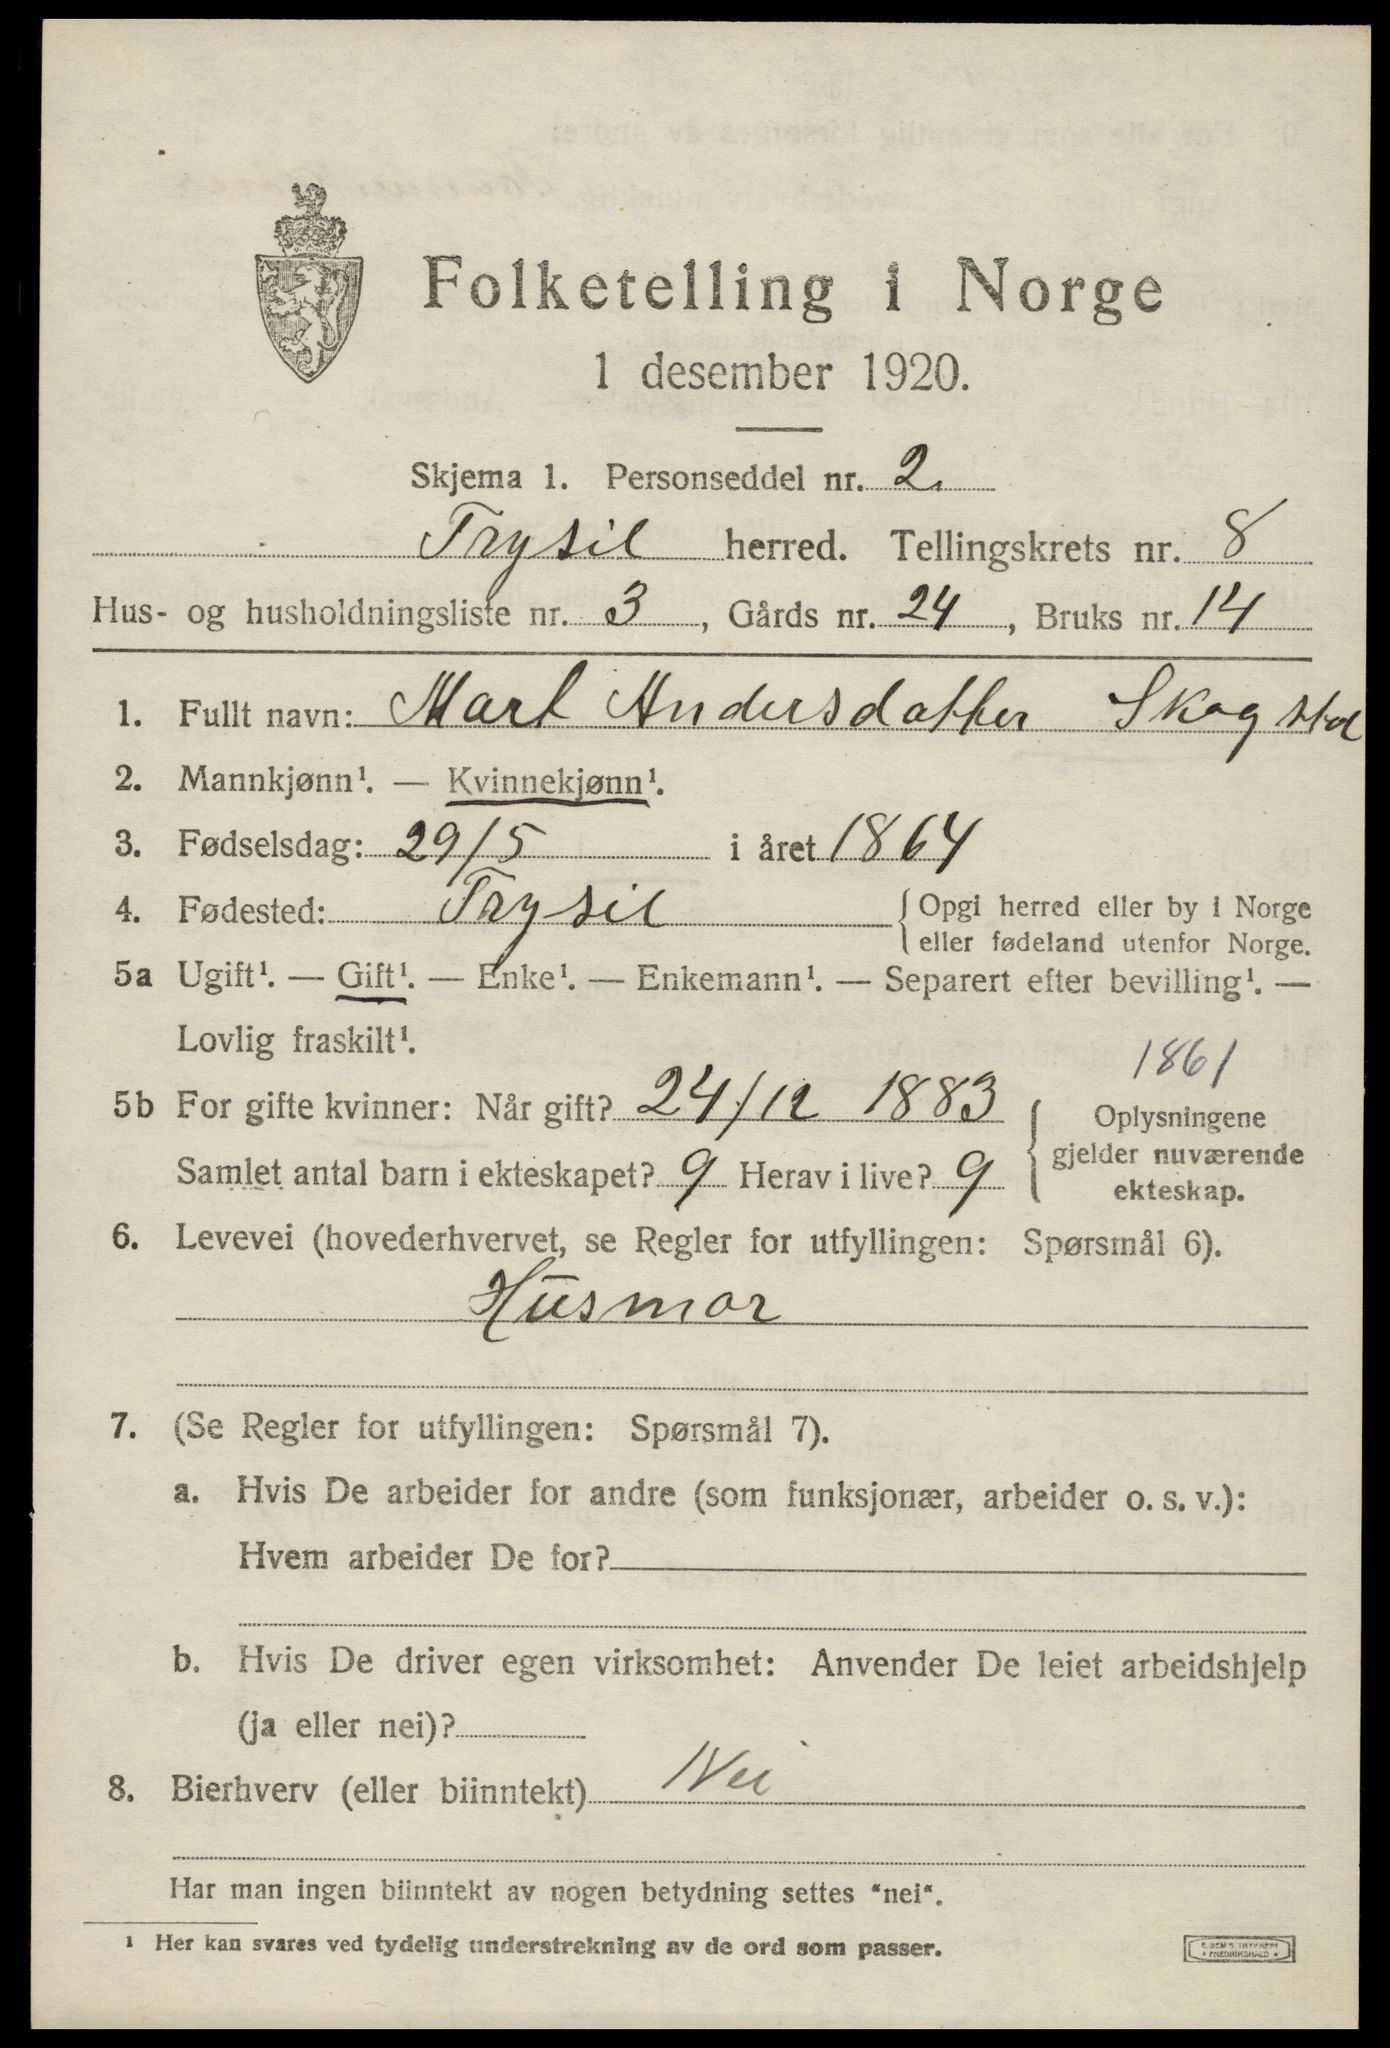 Folketelling i Norge
1 desember 1920.
Skjema 1. Personseddel nr. 2.
Trysil herred. Tellingskrets nr. 8
Hus- og husholdningsliste nr. 3, Gårds nr. 24, Bruks nr. 14
1. Fullt navn: Mart Andersdatter Skogstad
2. Mannkjønn¹. — Kvinnekjønn¹.
3. Fødselsdag: 29/5 i året 1864
4. Fødested: Trysil { Opgi herred eller by i Norge
eller fødeland utenfor Norge.
5a Ugift¹. — Gift¹. — Enke¹. — Enkemann¹. — Separert efter bevilling¹. —
Lovlig fraskilt¹.
1861
5b For gifte kvinner: Når gift? 24/12 1883 { Oplysningene
gjelder nuværende
Samlet antal barn i ekteskapet? 9 Herav i live? 9
ekteskap.
6. Levevei (hovederhvervet, se Regler for utfyllingen: Spørsmål 6).
Husmor
7. (Se Regler for utfyllingen: Spørsmål 7).
a. Hvis De arbeider for andre (som funksjonær, arbeider o. s. v.):
Hvem arbeider De for?
b. Hvis De driver egen virksomhet: Anvender De leiet arbeidshjelp
(ja eller nei)?
8. Bierhverv (eller biinntekt) Nei
Har man ingen biinntekt av nogen betydning settes "nei".
¹ Her kan svares ved tydelig understrekning av de ord som passer.